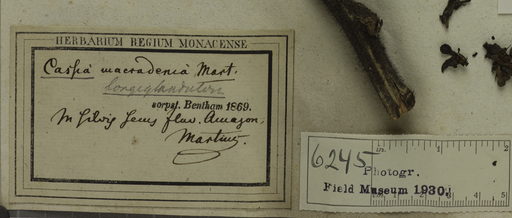 HERBARIUM REGIUM MONACENSE
Cassia macradenia Mart.
longiglandulosa
scrps. Bentham 1869.
In silvis flav. Amazon.
Martius
6245
in. 1 2
Photogr.
Field Museum 1930.
cm 1 2 3 4 5